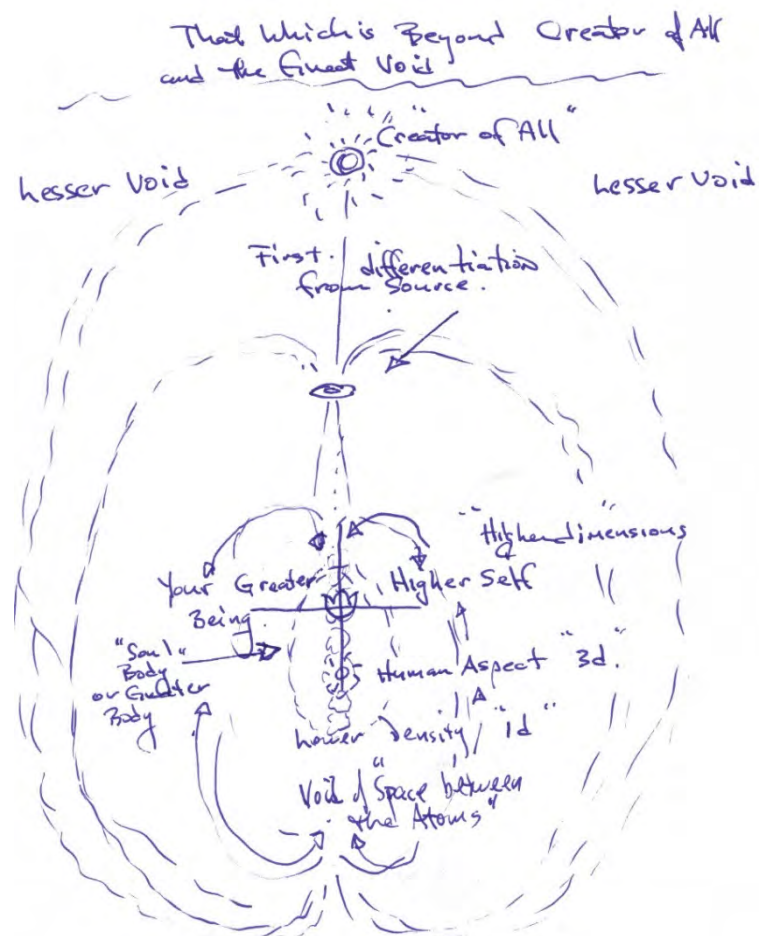 That Which is Beyond Creator of All
and the Great Void
"Creator of All"
Lesser Void
Lesser Void
First differentiation
from Source.
"Higher dimensions"
Your Greater
Being
Higher Self
"Soul"
Body
or Greater
Body
Human Aspect "3d."
Lower Density "1d"
Void of "Space between
the Atoms"